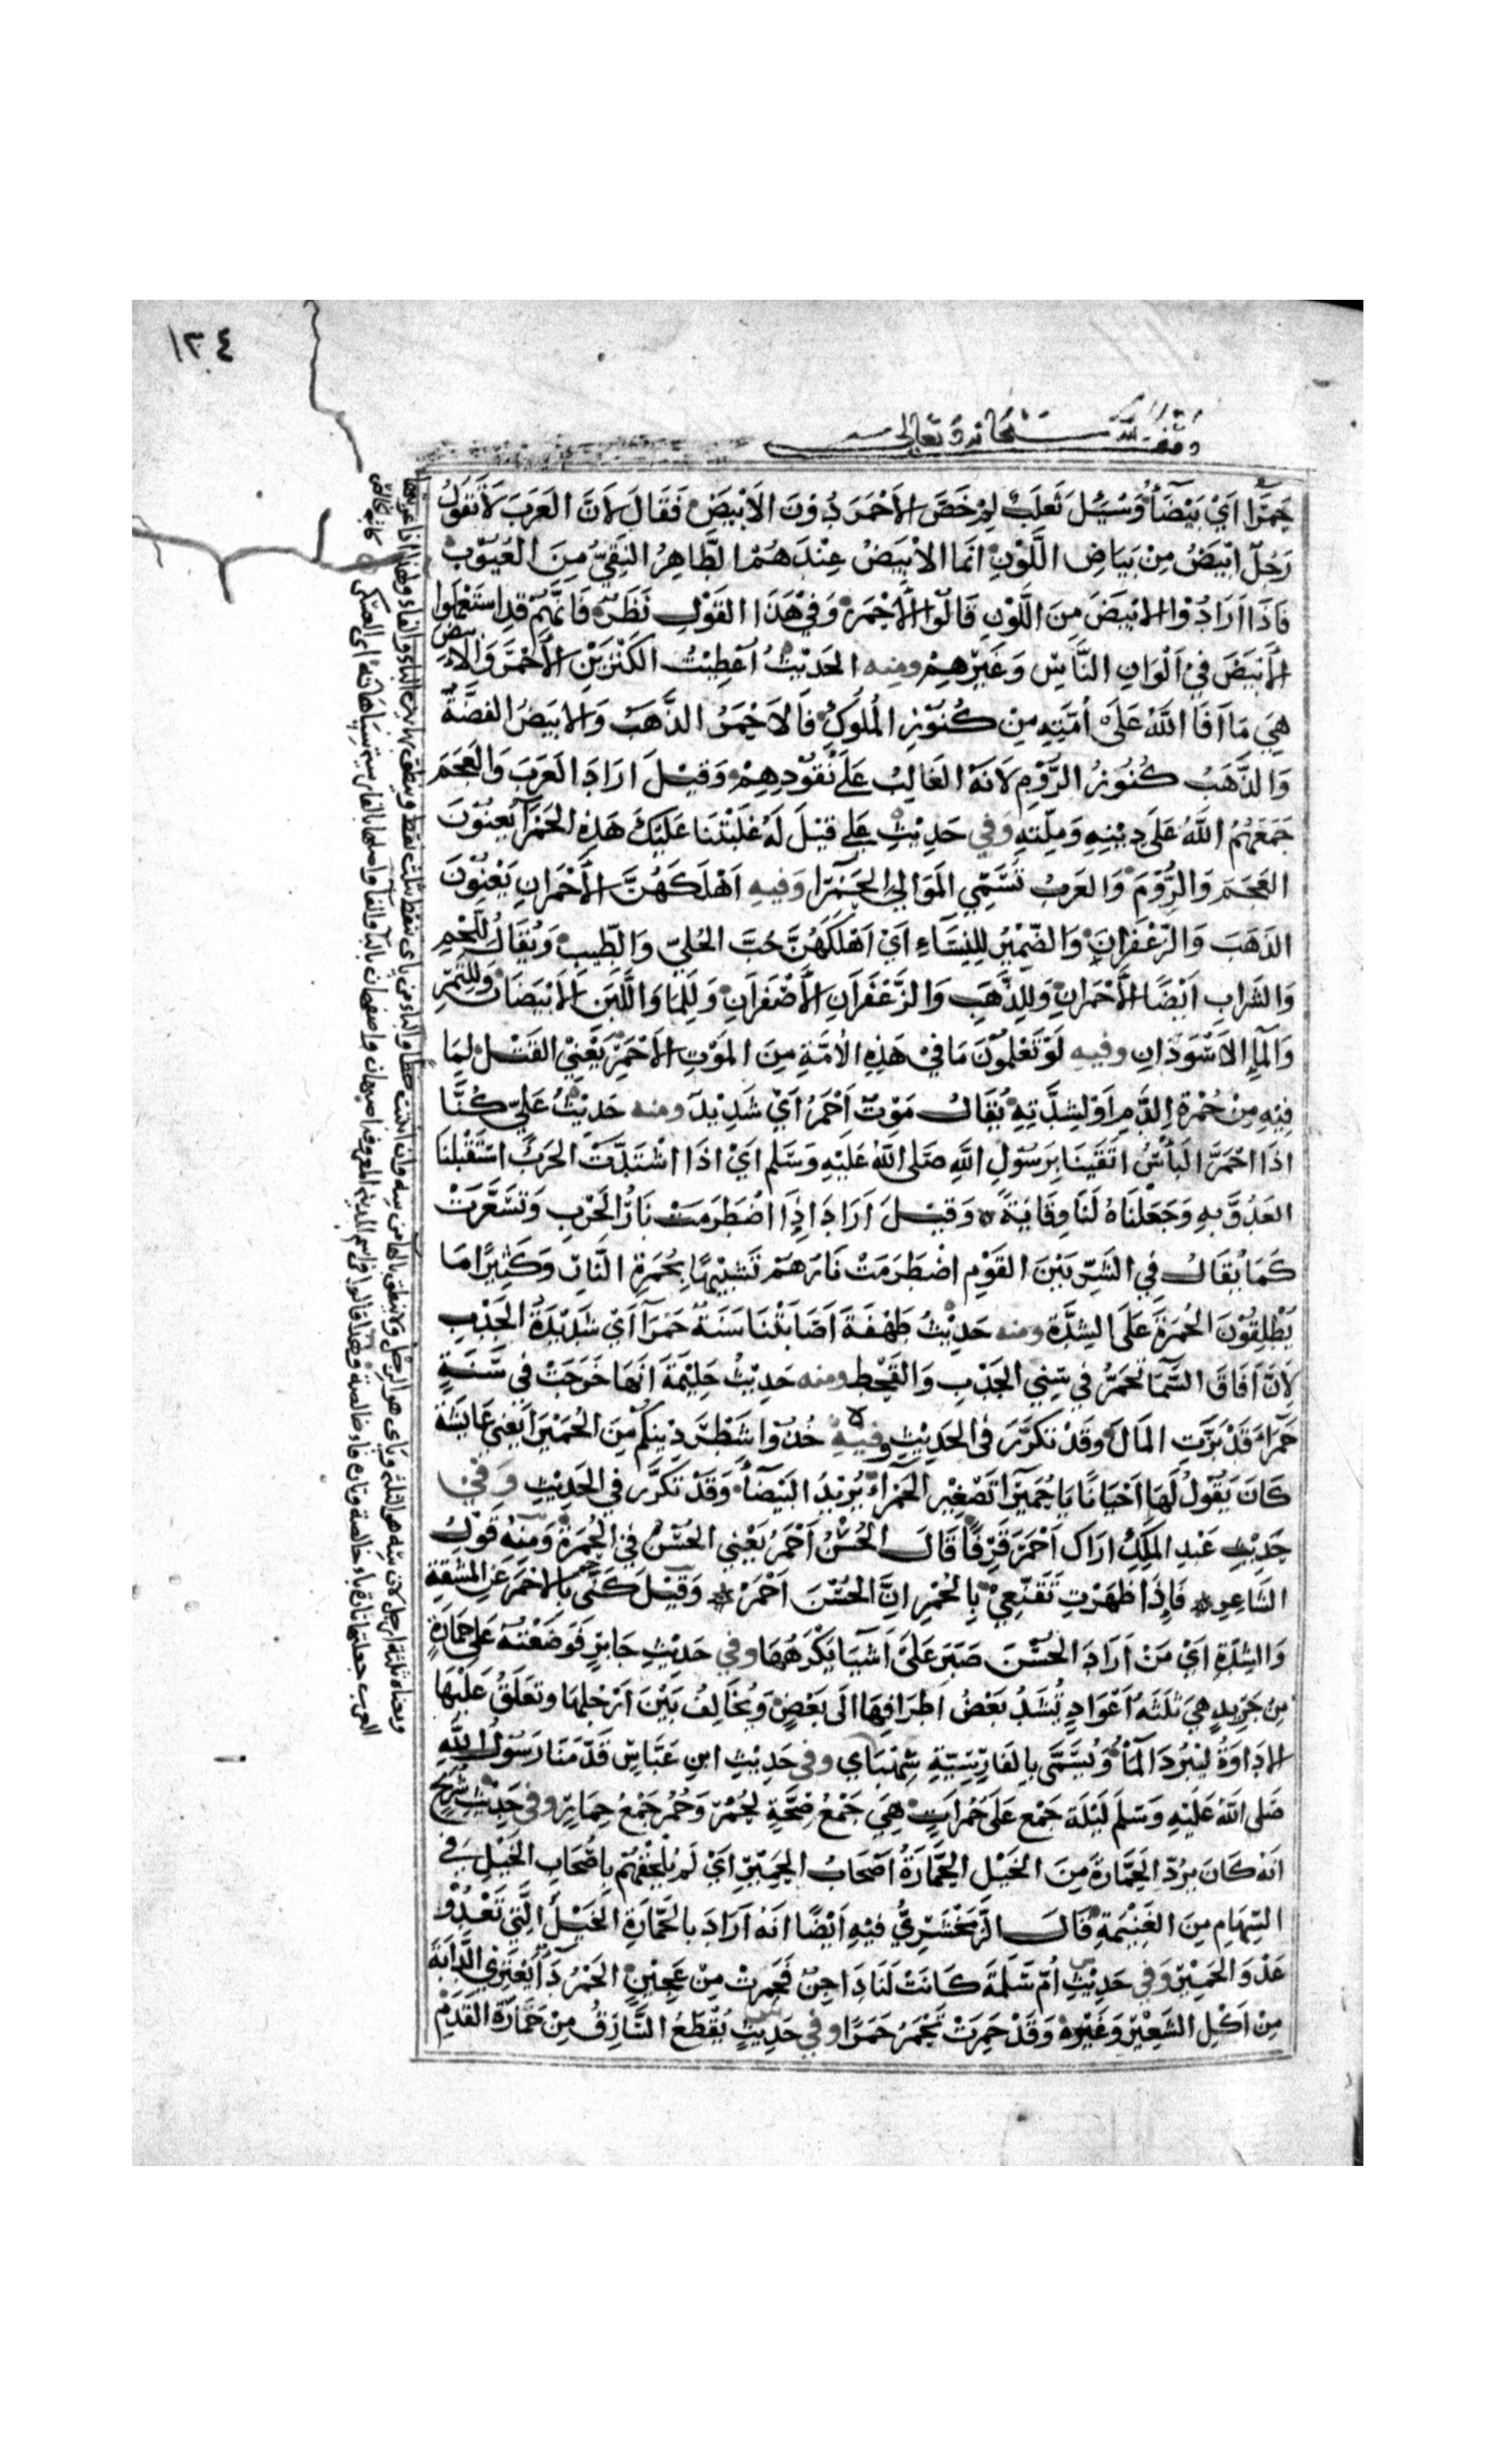 ١٣٤
وقف لله سبحانه وتعالى
حَمرًا اَيْ بَيْضَآءُ وَسُئِلَ ثَعلَبٌ لِمَ خَصَّ الاَحْمَرَ دُوْنَ الاَبْيَضْ فَقَالَ لاَنَّ العَرَبَ لاَ تَقولُ
رَجُلٌ ابْيَضُ مِنْ بَيَاضِ اللَّوْنِ انمَا الاْبيَضُ عِنْدَهُمْ الطَّاهِرُ النَقِيُّ مِنَ العُيُوْبْ
فَاذَا اَرَادُوْا الابْيَضَ مِنَ اللَّوْنِ قَالُوْا الاَحْمَرْ وَفيْ هَذَا القَوْلِ نَظَرٌ فَانَّهُمْ قد استَعْمَلوا
الاَبْيَضَ فيْ اَلْوَانِ النَّاسِ وَغَيْرِهِمْ ومنه الحَدِيْثُ اُعْطِيْتُ الكَنْزَيْنِ الاَحْمَرَ وَالابيض
هِيَ مَا اَفَا اللَّهُ عَلَى اُمَّتِهِ مِنْ كُنُوْزِ المُلُوكْ فَالاَحْمَرُ الذَّهَبُ وَالابيَضُ الفضَّةُ
وَالذَّهَبُ كُنُوزُ الرُّوْمِ لاَنَهُ الغَالِبُ عَلَى نُقُوْدِهِمْ وَقِيْلَ ارَادَ العَرَبَ وَالعَجَمَ
جَمَعَهُمُ اللَّهُ عَلَى دِيْنِهِ وَمِلّتِهِ وَفي حَدِيْثِ عَلي قِيْلَ لَهُ غَلَبَتْنَا عَلَيْكَ هَذِهِ الحَمْرَآ يَعنُوْنَ
العَجَمَ وَالرُّوْمَ وَالعَرَبُ تُسَمِّي المَوَالِيَ الحَمْرَا وَفيهِ اَهْلَكَهُنَّ الاَحْمَرانِ يَعْنُوْنَ
الذَهَبَ وَالزّعْفَرانَ وَالضّمِيْرُ لِلنِسَآءِ اَيْ اَهْلَكَهُنَّ حُبَّ الحُليّ وَالطّيبْ وَيُقَالُ للّحْمِ
وَالشَّرابِ اَيْضًا الاَحْمَرانِ وَلِلذَّهَبِ وَالزَّعْفَرَانِ الاَصْفَرَانِ وَلِلمَا وَاللَّبَنِ الاَبْيَضَانِ وَلِلتَّمْرِ
وَالمَآءِ الاَسْوَدَانِ وفيه لَوْ تَعْلَمُوْنَ مَا فيْ هَذِهِ الاُمَّةِ مِنَ المَوْتِ الاَحْمَرْ يَعْنِيْ القَتْلَ لِمَا
فِيْهِ مِنْ حُمْرَةِ الدَّمِ اَوْ لِشِدَّتِهِ يُقَالُ مَوْتٌ اَحْمَرُ اَيْ شَدِيْدٌ ومنه حَدِيْثُ عَليّ كُنَّا
اذَا احْمَرَّ البَأْسُ اتَّقَيْنَا بِرَسُوْلِ اللَّهِ صَلى اللَّهُ عَلَيْهِ وَسَلم اَيْ اذَا اشْتَدَّتْ الحَرْبُ اسْتَقْبَلنَا
العَدُوَّ بِهِ وَجَعَلْنَاهُ لَنَا وِقَايَةً وَقِيْلَ اَرَادَ اِذَا اضْطَرَمَتْ نَارُ الحَرْبِ وَتَسَعَّرَتْ
كَمَا يُقَالُ فيِ الشَرِّ بَيْنَ القَوْمِ اضْطَرَمَتْ نَارَهُمْ تَشْبِيْهًا بِحُمْرَةِ النَّارِ وَكَثِيْرًا مَا
يُطْلِقُوْنَ الحُمْرَةَ عَلَى الشِدَّةِ ومنه حَدِيْثُ طِهْفَةَ اَصَابَتْنَا سَنَةٌ حَمْرَآ اَيْ شَدِيْدَةُ الجَدْبِ
لاَنَّ اَفَاقَ السَّمَآ تَحْمَرُّ في سِنِي الجَدْبِ وَالقَحْطِ ومنه حَدِيْثُ حَلِيْمَةَ اَنهَا خَرَجَتْ في سَنَةٍ
حَمْرَاءَ قَدْ بَرَتِ المَالَ وَقَدْ تكَرَّرَ في الحَدِيْثِ وفيهِ خُذُوا شَطْرَ دِيْنِكُمْ مِنَ الحُمَيْرَآ يَعْنِي عَايشَةَ
كَانَ يَقُوْلُ لَهَا اَحْيَانًا يَا حُمَيْرَا تَصْغِيْرِ الحَمْرَآءِ يُرِيْدُ البَيْضَآءُ وَقَدْ تَكَرَّرَ في الحَدِيْثِ وَفي
حَدِيْثِ عَبْدِ المَلِكِ ارَاكَ اَحْمَرَ قَرِفًا قَالَ الحُسْنُ اَحْمَرُ يَعْنِي الحُسْنُ في الحُمْرَةِ وَمِنْهُ قَوْلُ
الشَاعِرِ ٭ فَاِذَا ظَهَرْتِ تَقَنَّعِيْ بِالحُمْرِ اِنَّ الحُسْنَ اَحْمَرْ ٭ وَقِيْلَ كَنَى بِالاحْمَرَ عَنِ المَشَقَّةِ
وَالشِّدَّةِ اَيْ مَنْ اَرَادَ الحُسْنَ صَبَرَ عَلَى اَشْيَا يَكْرَهُهَا وفي حَدِيْثِ جَابِرٍ فَوَضَعْتهُ عَلى حِمَارَةٍ
مِنْ جَرِيدٍ هِيَ ثَلَثَةُ اَعْوَادٍ يُشَدُّ بَعْضُ اطرَافِهَا الَى بَعْضٍ وَيُخَالِفُ بَيْنَ اَرْجُلِهَا وَتُعَلّقُ عَلَيْهَا
الادَاوَةُ لِيَبْرُدَ المَآءُ وَتُسَمَّى بِالفَارِسِيَّةِ سِهْنبَاي وفي حَدِيْثِ ابنِ عَبّاسٍ قَدّمَنَا رَسُوْلُ اللَّهِ
صَلى اللَّهُ عَلَيْهِ وَسَلمَ لَيْلَةَ جَمْعٍ عَلَى حُمُرَاتٍ هِيَ جَمْعُ صِحَّةٍ لِحُمُرْ وَحُمُر جَمْعُ حِمَارٍ وفي حَدِيْثِ شُرَيْحٍ
انهُ كَانَ يَرُدّ الحَمَّارَةَ مِنَ الخَيْلِ الحَمَّارَةُ اَصْحَابُ الحَمِيْرِ اَيْ لَمْ يُلْحِقْهُمْ بِاَصْحَابِ الخَيْلِ في
السِّهَامِ مِنَ الغَنِيْمَةِ قَالَ الزَّمَخْشَرِيُّ فيْهِ اَيْضًا انَهُ اَرَادَ بالحَمَّارَةِ الخَيْلَ الَّتِي تَعْدُوْ
عَدْوَ الحَمِيْرِ وَفي حَدِيْثِ اُمّ سَلَمَةَ كَانَتْ لَنَا دَاجِنٌ فَحَمِرتْ مِنْ عَجِيْنٍ الحَمَرُ دَآءٌ يَعْتَرِي الدَّابَّةَ
مِنْ اَكْلِ الشَعِيْرِ وَغَيْرِهْ وَقَدْ حَمِرَتْ تَحْمَرُ حَمَرًا وفي حَدِيْثِ يُقْطَعُ السَّارِقُ مِنْ حَمَارّةِ القَدَمِ